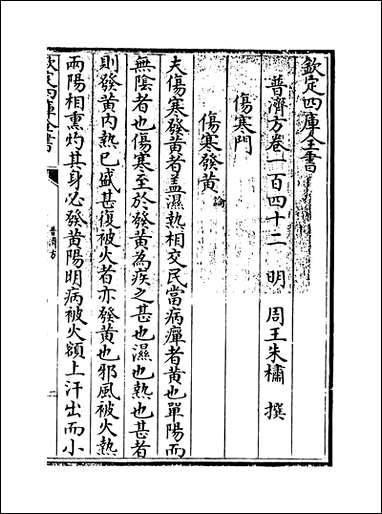 欽定四庫全書
普濟方卷一百四十二 明 周王朱橚 撰
傷寒門
傷寒發黃 論
夫傷寒發黃者盖濕熱相交民當病癉者黃也單陽而
無陰者也傷寒至於發黃為疾之甚也濕也熱也甚者
則發黃内熱已盛甚復被火者亦發黃也邪風被火熱
兩陽相熏灼其身必發黃陽明病被火額上汗出而小
欽定四庫全書
普濟方